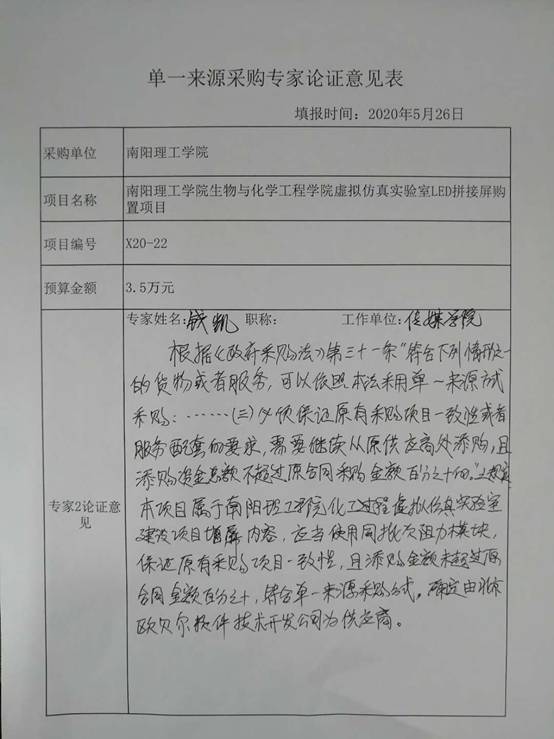 单一来源采购专家论证意见表
填报时间：2020年5月26日
采购单位
南阳理工学院
项目名称
南阳理工学院生物与化学工程学院虚拟仿真实验室LED拼接屏购
置项目
项目编号
X20-22
预算金额
3.5万元
专家2论证意
见
专家姓名：钱凯 职称： 工作单位：传媒学院
根据《政府采购法》第三十一条“符合下列情形之一
的货物或者服务，可以依照本法采用单一来源方式
采购：……（三）必须保证原有采购项目一致性或者
服务配套的要求，需要继续从原供应商处添购，且
添购资金总额不超过原合同采购金额百分之十的。”
本项目属于南阳理工学院化工过程虚拟仿真实验室
建设项目增屏内容，应当使用同批次模块，
保证原有采购项目一致性，且添购金额未超过原
合同金额百分之十，符合单一来源采购方式。确定由北京
欧贝尔软件技术开发公司为供应商。